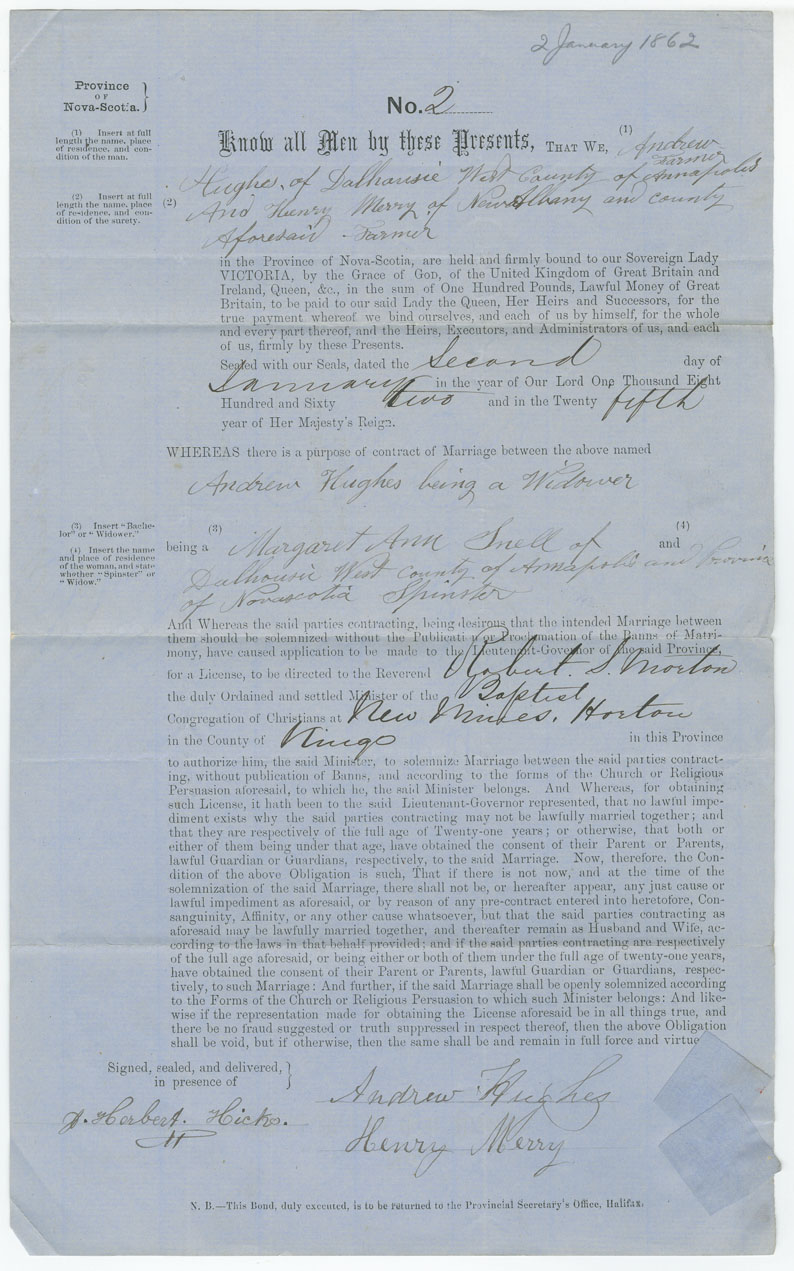 2 January 1862
Province
OF
Nova-Scotia. }
No. 2
(1) Insert at full
length the name, place
of residence, and con-
dition of the man.
Know all Men by these Presents, THAT WE, (1) Andrew
Farmer
Hughes, of Dalhousie West County of Annapolis
(2) Insert at full
length the name, place
of residence, and con-
dition of the surety.
(2) And Henry Merry of New Albany and county
Aforesaid - Farmer
in the Province of Nova-Scotia, are held and firmly bound to our Sovereign Lady
VICTORIA, by the Grace of GOD, of the United Kingdom of Great Britain and
Ireland, Queen, &c., in the sum of One Hundred Pounds, Lawful Money of Great
Britain, to be paid to our said Lady the Queen, Her Heirs and Successors, for the
true payment whereof we bind ourselves, and each of us by himself, for the whole
and every part thereof, and the Heirs, Executors, and Administrators of us, and each
of us, firmly by these Presents.
Sealed with our Seals, dated the Second day of
January in the year of Our Lord One Thousand Eight
Hundred and Sixty two and in the Twenty fifth
year of Her Majesty's Reign.
WHEREAS there is a purpose of contract of Marriage between the above named
Andrew Hughes being a Widower
(3) Insert "Bache-
lor" or "Widower."
(4) Insert the name
and place of residence
of the woman, and state
whether "Spinster" or
"Widow."
being a (3) Margaret Ann Snell of and (4)
Dalhousie West County of Annapolis and Province
of Novascotia Spinster
And Whereas the said parties contracting, being desirous that the intended Marriage between
them should be solemnized without the Publication or Proclamation of the Banns of Matri-
mony, have caused application to be made to the Lieutenant-Governor of the said Province,
for a License, to be directed to the Reverend Robert. S. Morton
the duly Ordained and settled Minister of the Baptist
Congregation of Christians at New Mines. Horton
in the County of Kings in this Province
to authorize him, the said Minister, to solemnize Marriage between the said parties contract-
ing, without publication of Banns, and according to the forms of the Church or Religious
Persuasion aforesaid, to which he, the said Minister belongs. And Whereas, for obtaining
such License, it hath been to the said Lieutenant-Governor represented, that no lawful impe-
diment exists why the said parties contracting may not be lawfully married together; and
that they are respectively of the full age of Twenty-one years; or otherwise, that both or
either of them being under that age, have obtained the consent of their Parent or Parents,
lawful Guardian or Guardians, respectively, to the said Marriage. Now, therefore, the Con-
dition of the above Obligation is such, That if there is not now, and at the time of the
solemnization of the said Marriage, there shall not be, or hereafter appear, any just cause or
lawful impediment as aforesaid, or by reason of any pre-contract entered into heretofore, Con-
sanguinity, Affinity, or any other cause whatsoever, but that the said parties contracting as
aforesaid may be lawfully married together, and thereafter remain as Husband and Wife, ac-
cording to the laws in that behalf provided; and if the said parties contracting are respectively
of the full age aforesaid, or being either or both of them under the full age of twenty-one years,
have obtained the consent of their Parent or Parents, lawful Guardian or Guardians, respec-
tively, to such Marriage: And further, if the said Marriage shall be openly solemnized according
to the Forms of the Church or Religious Persuasion to which such Minister belongs: And like-
wise if the representation made for obtaining the License aforesaid be in all things true, and
there be no fraud suggested or truth suppressed in respect thereof, then the above Obligation
shall be void, but if otherwise, then the same shall be and remain in full force and virtue.
Signed, sealed, and delivered, }
in presence of
Andrew Hughes
J. Herbert. Hicks.
Henry Merry
N. B.—This Bond, duly executed, is to be returned to the Provincial Secretary's Office, Halifax.